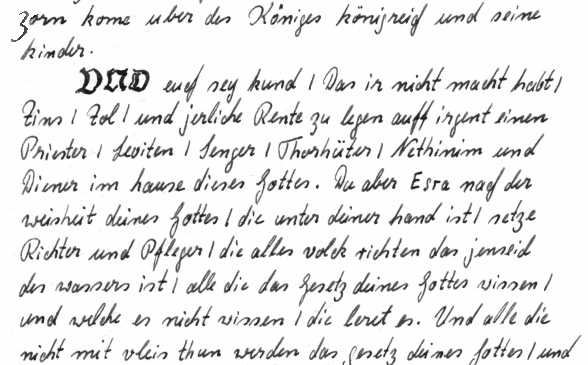 zorn kome uber des Königes königreich und seine
kinder.
VND euch sey kund / Das ir nicht macht habt /
Zins / Zol / und jerliche Rente zu legen auff irgent einen
Priester / Leviten / Senger / Thorhüter / Nethinim und
Diener im hause dieses Gottes. Du aber Esra nach der
weisheit deines Gottes / die unter deiner hand ist / setze
Richter und Pfleger / die alles volck richten das jenseid
des wassers ist / alle die das Gesetz deines Gottes wissen /
und welche es nicht wissen / die leret es. Und alle die
nicht mit vleis thun werden das gesetz deines Gottes / und